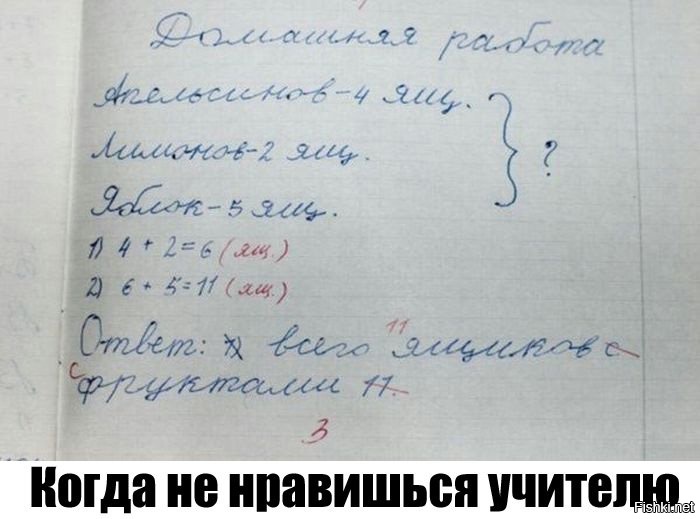 Домашняя работа
Апельсинов-4 ящ.
Лимонов-2 ящ. } ?
Яблок-5 ящ.
1) 4 + 2 = 6 (ящ.)
2) 6 + 5 = 11 (ящ.)
11
Ответ: всего ящиков с
с фруктами 11.
3
Когда не нравишься учителю
Fishki.net